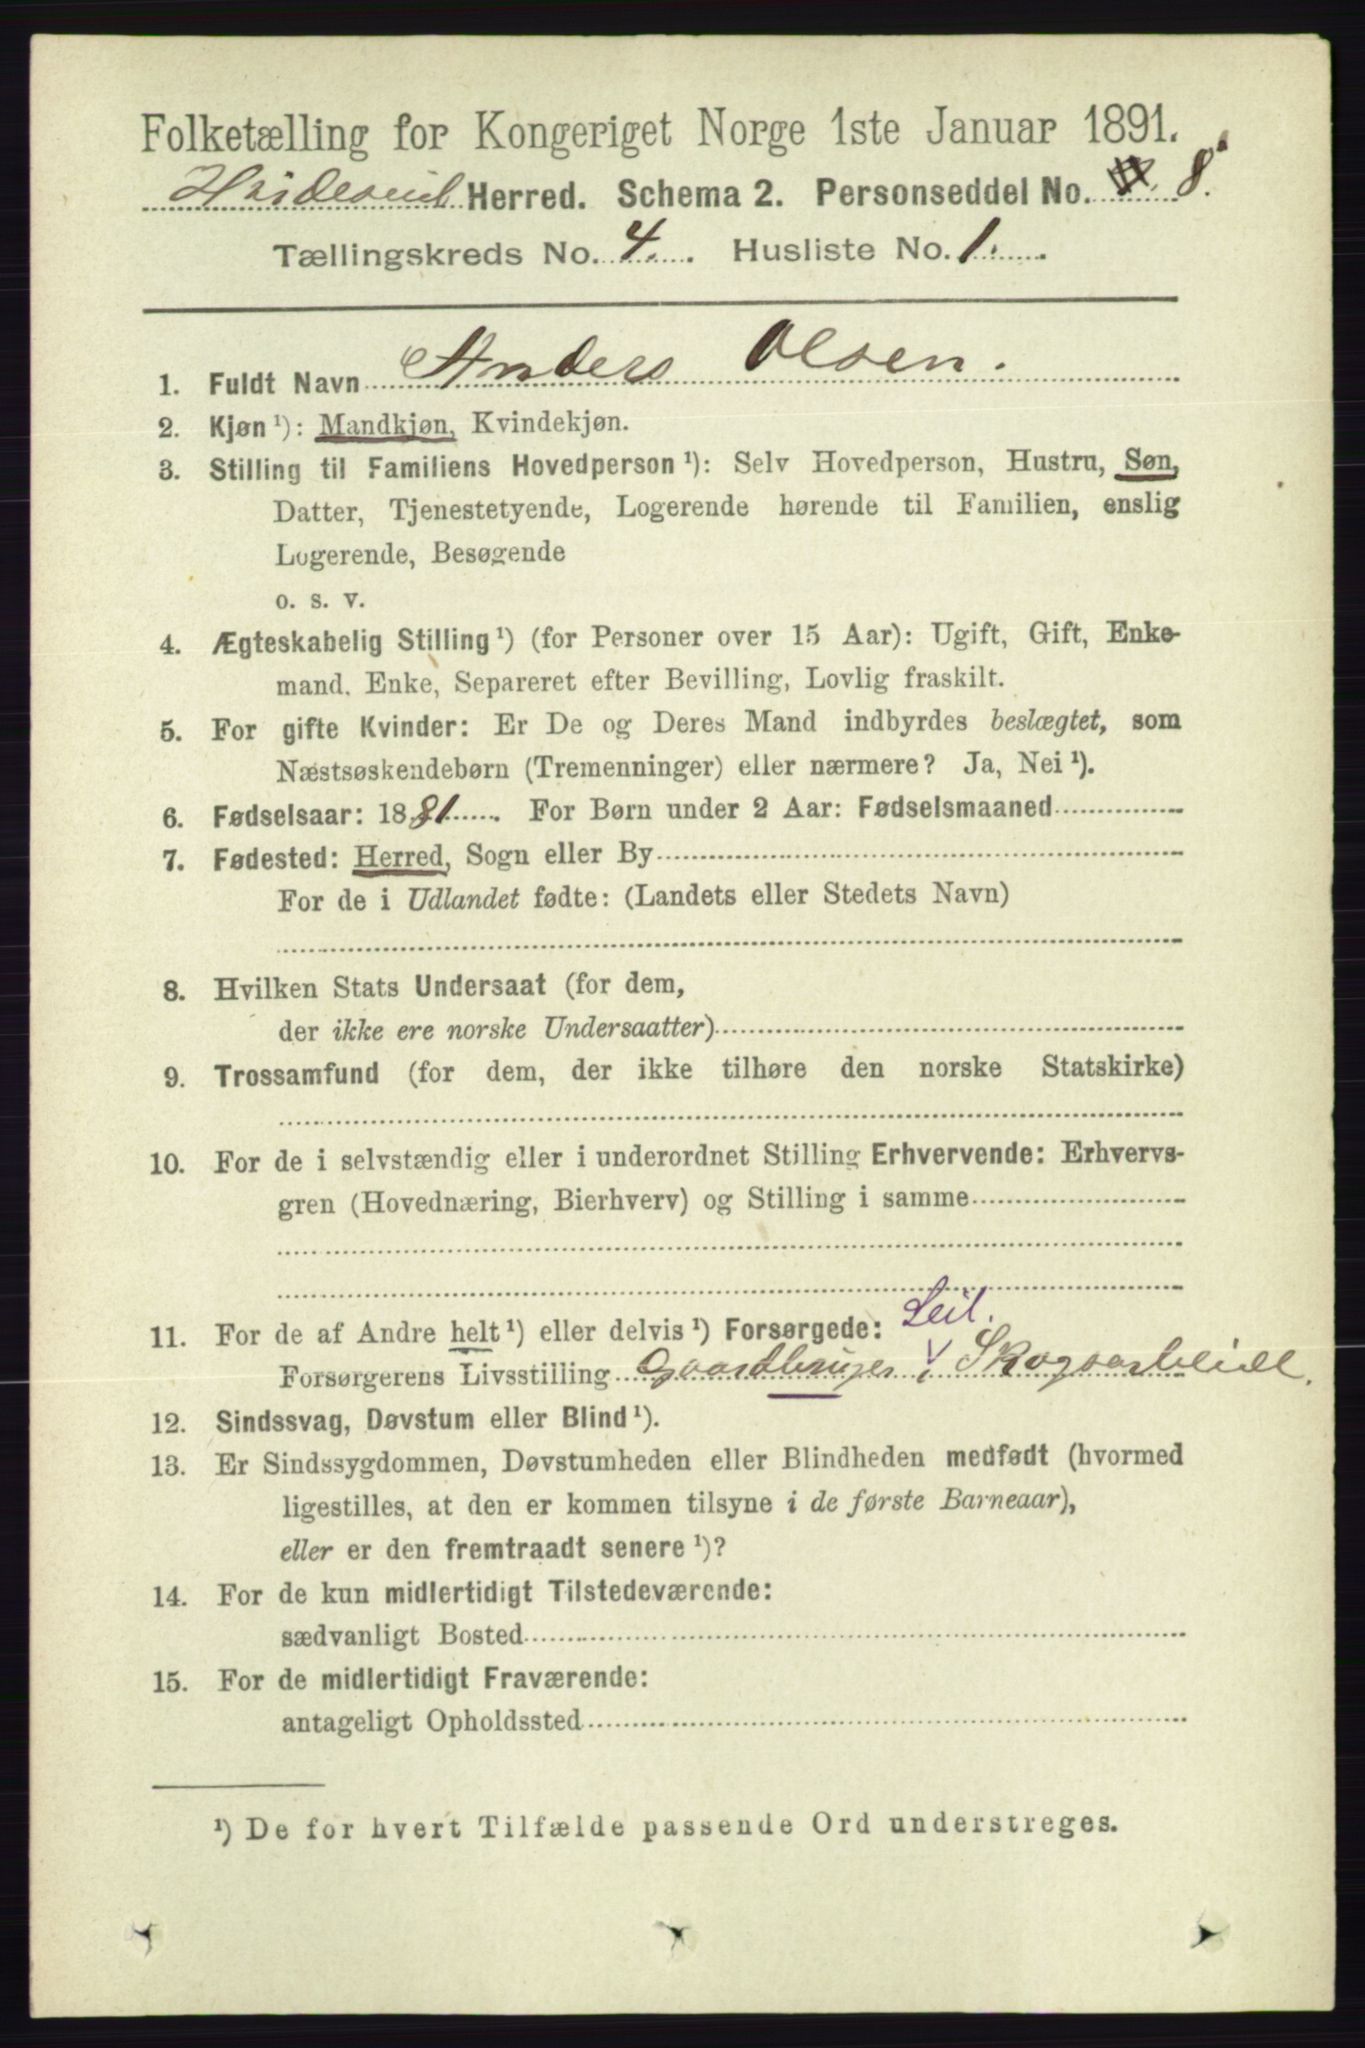 Folketælling for Kongeriget Norge 1ste Januar 1891.
Hvideseid Herred. Schema 2. Personseddel No. 8.
Tællingskreds No. 4. Husliste No. 1.
1. Fuldt Navn Anders Olsen.
2. Kjøn ¹): Mandkjøn, Kvindekjøn.
3. Stilling til Familiens Hovedperson ¹): Selv Hovedperson, Hustru, Søn,
Datter, Tjenestetyende, Logerende hørende til Familien, enslig
Logerende, Besøgende
o. s. v.
4. Ægteskabelig Stilling ¹) (for Personer over 15 Aar): Ugift, Gift, Enke-
mand, Enke, Separeret efter Bevilling, Lovlig fraskilt.
5. For gifte Kvinder: Er De og Deres Mand indbyrdes beslægtet, som
Næstsøskendebørn (Tremenninger) eller nærmere? Ja, Nei ¹).
6. Fødselsaar: 1881. For Børn under 2 Aar: Fødselsmaaned
7. Fødested: Herred, Sogn eller By
For de i Udlandet fødte: (Landets eller Stedets Navn)
8. Hvilken Stats Undersaat (for dem,
der ikke ere norske Undersaatter)
9. Trossamfund (for dem, der ikke tilhøre den norske Statskirke)
10. For de i selvstændig eller i underordnet Stilling Erhvervende: Erhvervs-
gren (Hovednæring, Bierhverv) og Stilling i samme
Leil.
11. For de af Andre helt ¹) eller delvis ¹) Forsørgede:
Forsørgerens Livsstilling Gaardbruger i Skogsarbeide.
12. Sindssvag, Døvstum eller Blind ¹).
13. Er Sindssygdommen, Døvstumheden eller Blindheden medfødt (hvormed
ligestilles, at den er kommen tilsyne i de første Barneaar),
eller er den fremtraadt senere ¹)?
14. For de kun midlertidigt Tilstedeværende:
sædvanligt Bosted
15. For de midlertidigt Fraværende:
antageligt Opholdssted
¹) De for hvert Tilfælde passende Ord understreges.